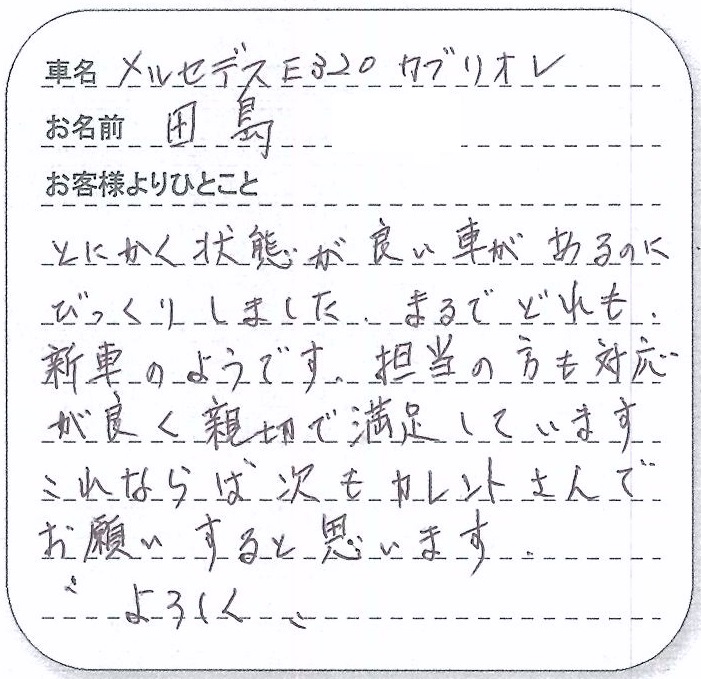 車名 メルセデスE320カブリオレ
お名前 田島
お客様よりひとこと
とにかく状態が良い車があるのに
びっくりしました、まるでどれも、
新車のようです、担当の方も対応
が良く親切で満足しています
これならば次もカレントさんで
お願いすると思います、
〝よろしく〟